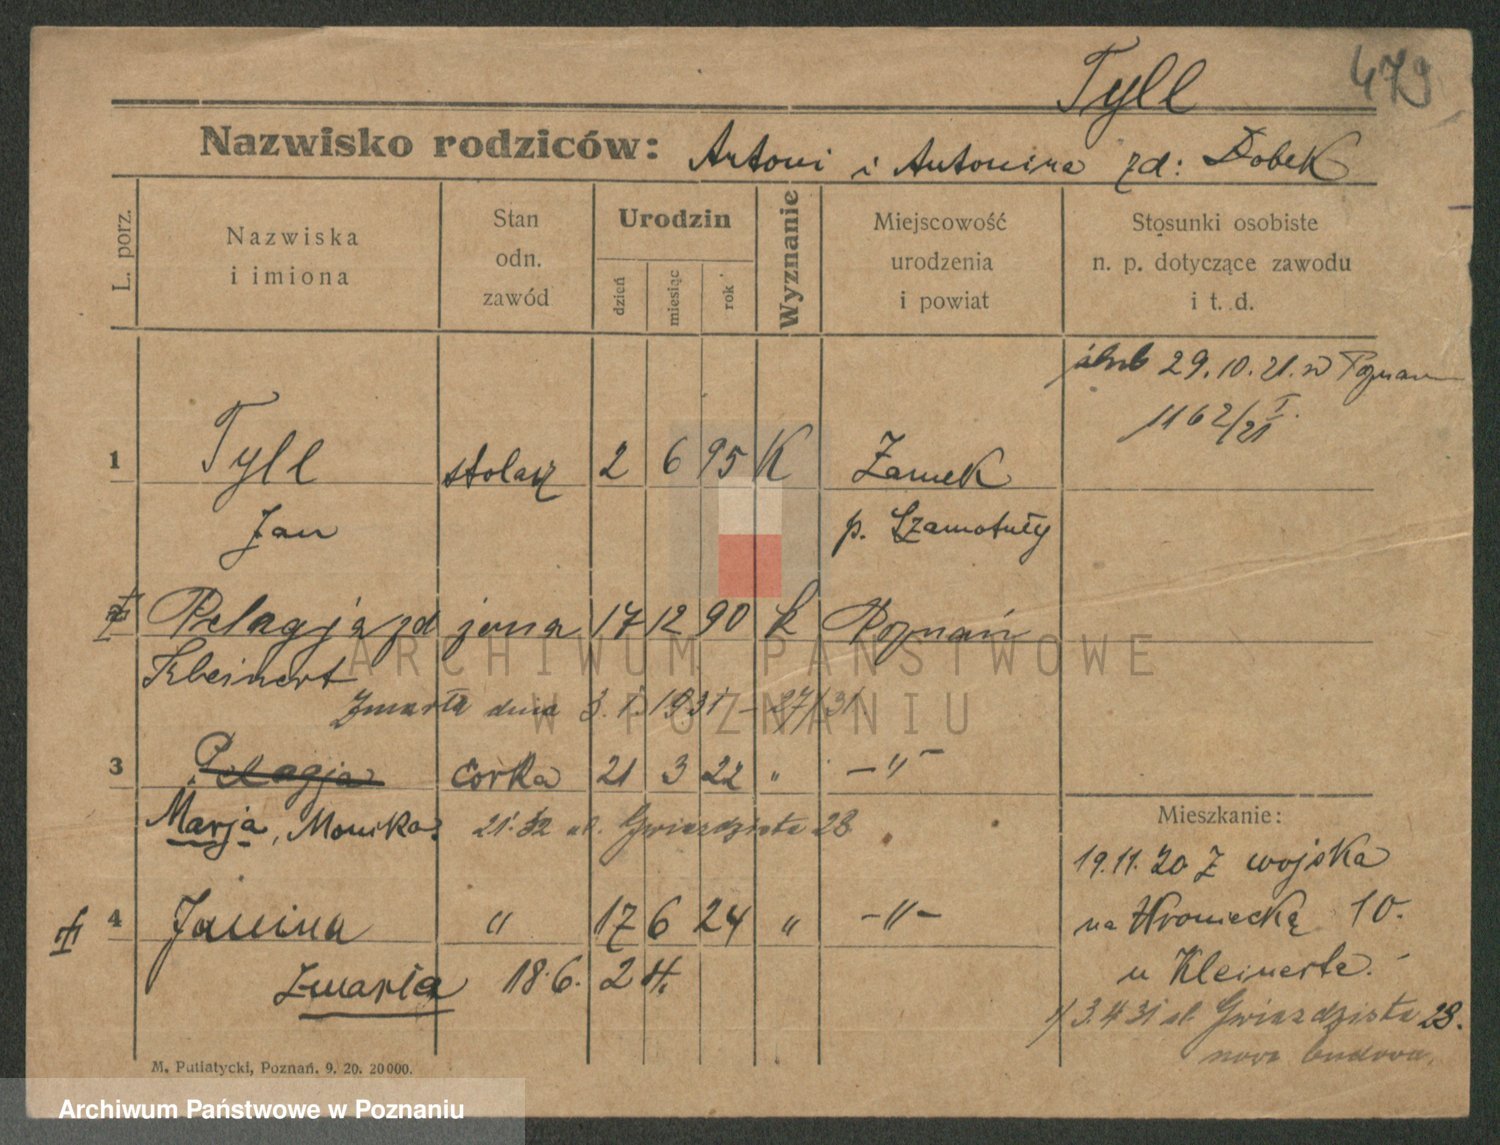 Tyll
479
Nazwisko rodziców: Antoni i Antonina zd: Dobek
L. porz.
Nazwiska
i imiona
Stan
odn.
zawód
Urodzin
dzień
miesiąc
rok
Wyznanie
Miejscowość
urodzenia
i powiat
Stosunki osobiste
n. p. dotyczące zawodu
i t. d.
ślub 29.10.21. w Poznan
1162/21 I.
1 Tyll stolarz 2 6 95 K Zamek
Jan p. Szamotuły
Pelagja zd żona 17 12 90 k Poznań
Kleinert
Zmarła dnia 3.1.1931 - 27/31
3 Pelagja córka 21 3 22 " -"-
Marja, Monika 21. 32 ul. Gwiazdzista 28
4 Janina " 17 6 24 " -"-
Zmarła 18.6. 24.
Mieszkanie:
19.11.20 Z wojska
na Wroniecką 10.
u Kleinerta.
3.4 31 ul. Gwiazdzista 28.
nowa budowa.
M. Putiatycki, Poznań. 9. 20. 20000.
ARCHIWUM PAŃSTWOWE
W POZNANIU
Archiwum Państwowe w Poznaniu